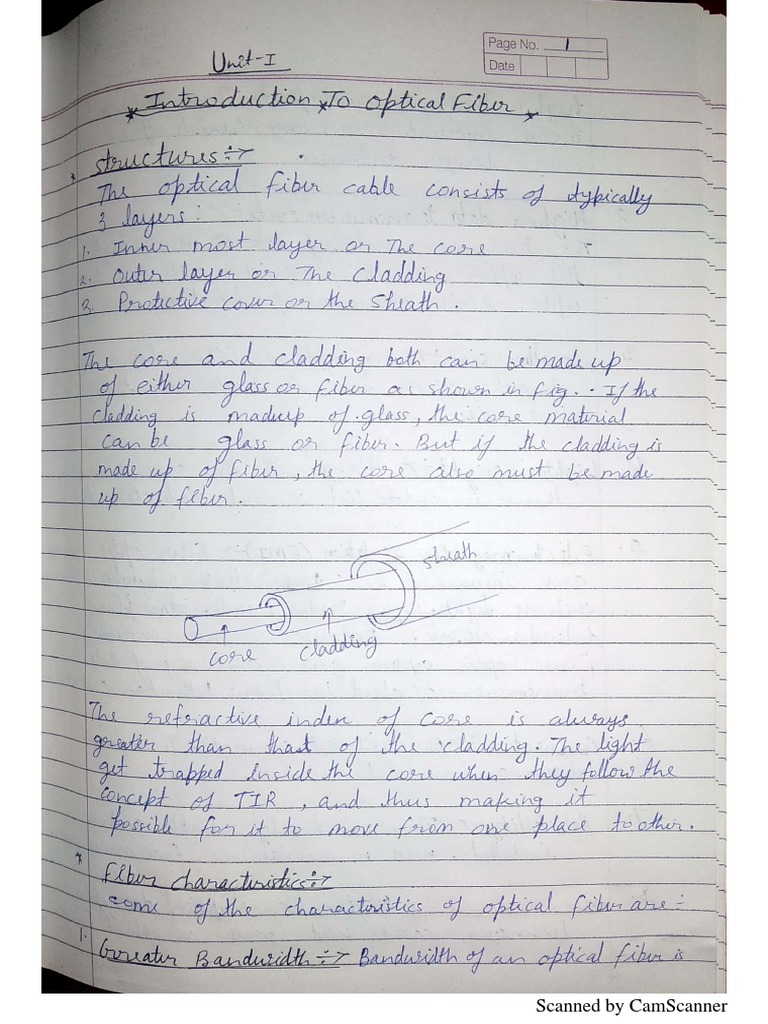 Page No. 1
Date
Unit-I
* Introduction * To Optical Fiber *
* Structures ÷→
The optical fiber cable consists of typically
3 layers :
1. Inner most layer or The core
2. Outer layer or The cladding
3. Protective cover or the Sheath .
The core and cladding both can be made up
of either glass or fiber as shown in fig.. If the
cladding is madeup of glass, the core material
can be glass or fiber. But if the cladding is
made up of fiber, the core also must be made
up of fiber.
sheath
core
cladding
The refractive index of core is always
greater than that of the cladding. The light
get trapped inside the core when they follow the
concept of TIR , and thus making it
possible for it to move from one place to other.
* Fiber characteristics ÷→
some of the characteristics of optical fiber are ÷
1. Greater Bandwidth ÷→ Bandwidth of an optical fiber is
Scanned by CamScanner